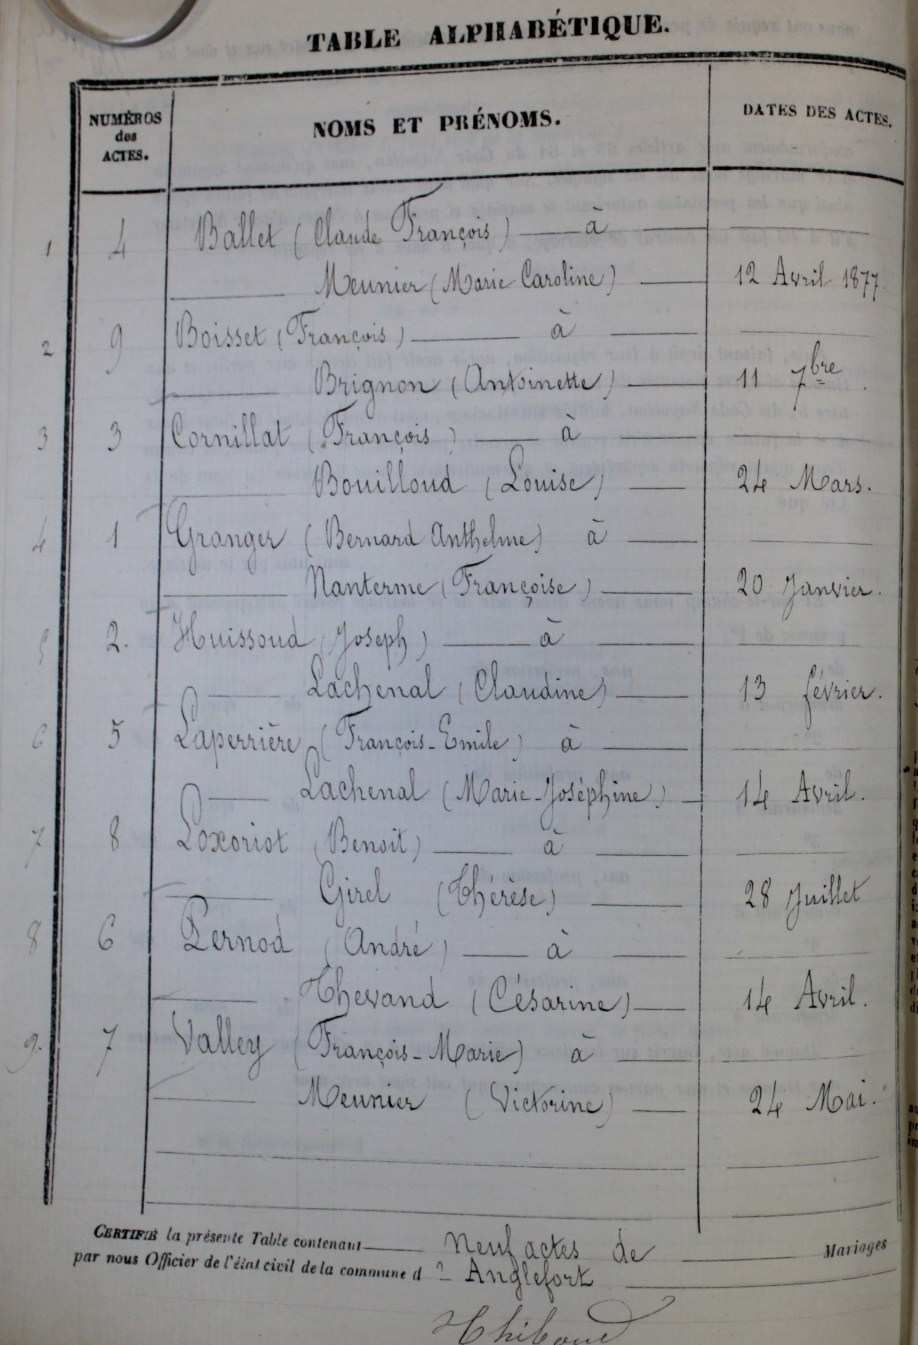 TABLE ALPHABÉTIQUE.
NUMÉROS des ACTES.
NOMS ET PRÉNOMS.
DATES DES ACTES.
1 4 Ballet (Claude François) à
Meunier (Marie Caroline) 12 Avril 1877
2 9 Boisset (François) à
Brignon (Antoinette) 11 7bre.
3 3 Cornillat (François) à
Bouilloud (Louise) 24 Mars.
4 1 Granger (Bernard Anthelme) à
Nanterme (Françoise) 20 Janvier.
5 2. Huissoud (Joseph) à
Lachenal (Claudine) 13 février.
6 5 Laperrière (François-Emile) à
Lachenal (Marie-Joséphine) 14 Avril.
7 8 Loxoriot (Benoit) à
Girel (Thérèse) 28 Juillet
8 6 Pernod (André) à
Thevand (Césarine) 14 Avril.
9. 7 Valley (François-Marie) à
Meunier (Victorine) 24 Mai.
CERTIFIÉ la présente Table contenant Neuf actes de Mariages
par nous Officier de l'état civil de la commune d' Anglefort